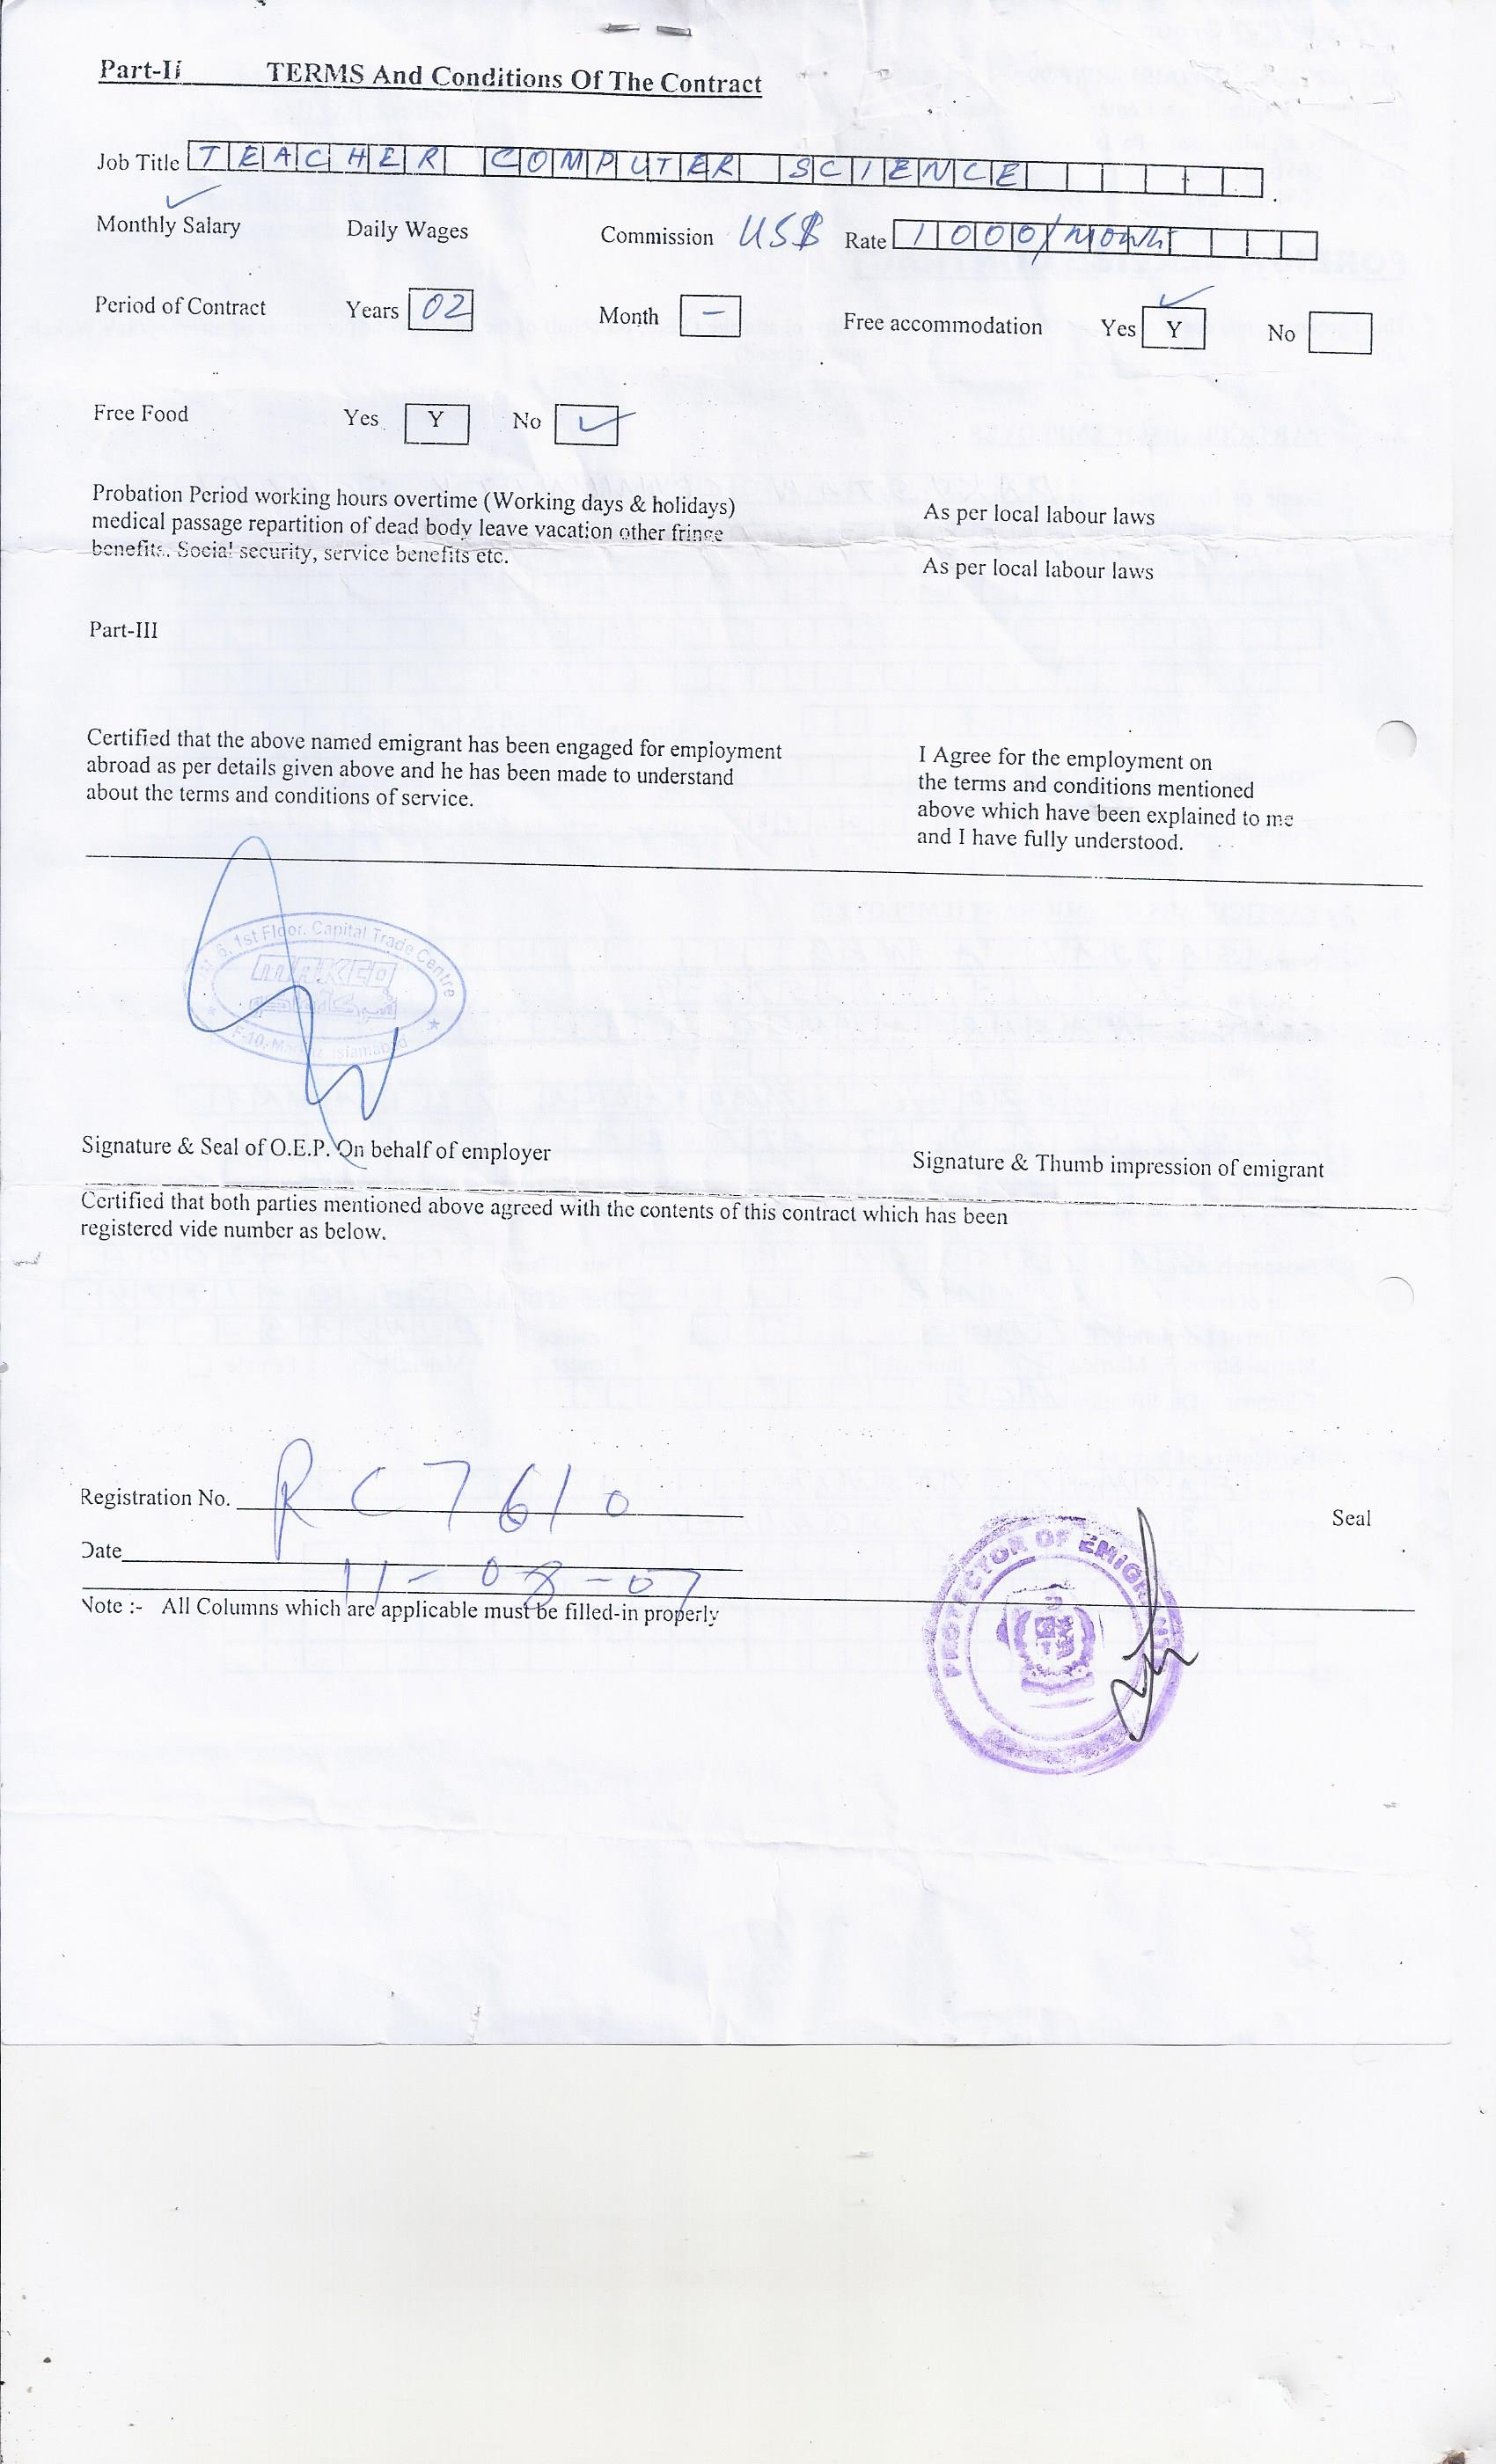 Part-Ii TERMS And Conditions Of The Contract
Job Title TEACHER COMPUTER SCIENCE
Monthly Salary Daily Wages Commission US$ Rate 1000/month
Period of Contract Years 02 Month - Free accommodation Yes Y No
Free Food Yes Y No
Probation Period working hours overtime (Working days & holidays)
medical passage repartition of dead body leave vacation other fringe
benefits. Social security, service benefits etc.
As per local labour laws
As per local labour laws
Part-III
Certified that the above named emigrant has been engaged for employment
abroad as per details given above and he has been made to understand
about the terms and conditions of service.
I Agree for the employment on
the terms and conditions mentioned
above which have been explained to me
and I have fully understood.
6, 1st Floor. Capital Trade Centre
MAKCO
F-10, Markaz, Islamabad
Signature & Seal of O.E.P. On behalf of employer
Signature & Thumb impression of emigrant
Certified that both parties mentioned above agreed with the contents of this contract which has been
registered vide number as below.
Registration No. RC7610
Seal
Date 11-08-07
PROTECTOR OF EMIGRANTS
Note :- All Columns which are applicable must be filled-in properly